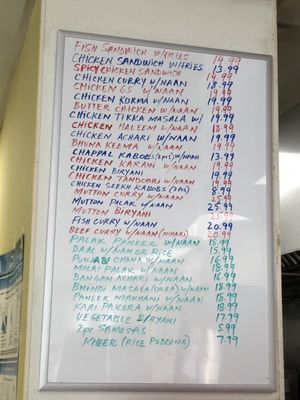 FISH SANDWICH W/FRIES 14.99
CHICKEN SANDWICH W/FRIES 13.99
SPICY CHICKEN SANDWICH 14.99
CHICKEN CURRY W/NAAN 18.99
CHICKEN 65 W/NAAN 19.99
CHICKEN KORMA W/NAAN 19.99
BUTTER CHICKEN W/NAAN 19.99
CHICKEN TIKKA MASALA W/ 19.99
CHICKEN HALEEM W/NAAN 18.99
CHICKEN ACHARI W/NAAN 19.99
BHUNA KEEMA W/NAAN 19.99
CHAPPAL KABOBS (2PCS) W/NAAN 13.99
CHICKEN KARAHI W/NAAN
CHICKEN BIRYANI 19.99
CHICKEN TANDOORI W/NAAN 19.99
CHICKEN SEEKH KABOBS (2PCS) 8.99
MUTTON CURRY W/NAAN 25.99
MUTTON PALAK W/NAAN 25.99
MUTTON BIRYANI
FISH CURRY W/NAAN 20.99
BEEF CURRY W/NAAN (NIHARI) 20.99
PALAK PANEER W/NAAN 18.99
DAAL W/NAN OR RICE 15.99
PUNJABI CHANA W/NAAN 16.99
MALAI PALAK W/NAAN 18.99
BANGAN ACHARI W/NAAN 16.99
BHINDI MASALA (OKRA) W/NAAN 18.99
PANEER MAKHANI W/NAAN 18.99
KARI PAKORA W/NAAN 18.99
VEGETABLE BIRYANI 17.99
2PC SAMOSAS 5.99
KHEER (RICE PUDDING) 7.99